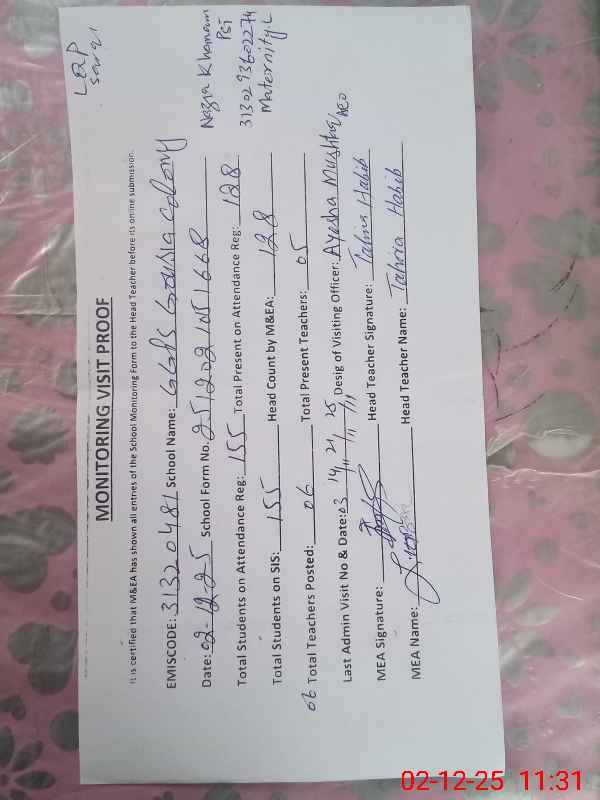 LQP
Sarai
Nazia Khanam
PST
3130293602274
Maternity.L
MONITORING VISIT PROOF
It is certified that M&EA has shown all entries of the School Monitoring Form to the Head Teacher before its online submission.
EMISCODE: 31320481 School Name: GGPS Gousia colony
Date: 02-12-25 School Form No. 251202101051668
Total Students on Attendance Reg: 155 Total Present on Attendance Reg: 128
Total Students on SIS: 155 Head Count by M&EA: 128
06 Total Teachers Posted: 06 Total Present Teachers: 05
Last Admin Visit No & Date: 03 14/11, 21/11, 25/11 Desig of Visiting Officer: Ayesha Mushtaq AEO
MEA Signature: Head Teacher Signature: Tahira Habib
MEA Name: Head Teacher Name: Tahira Habib
02-12-25 11:31